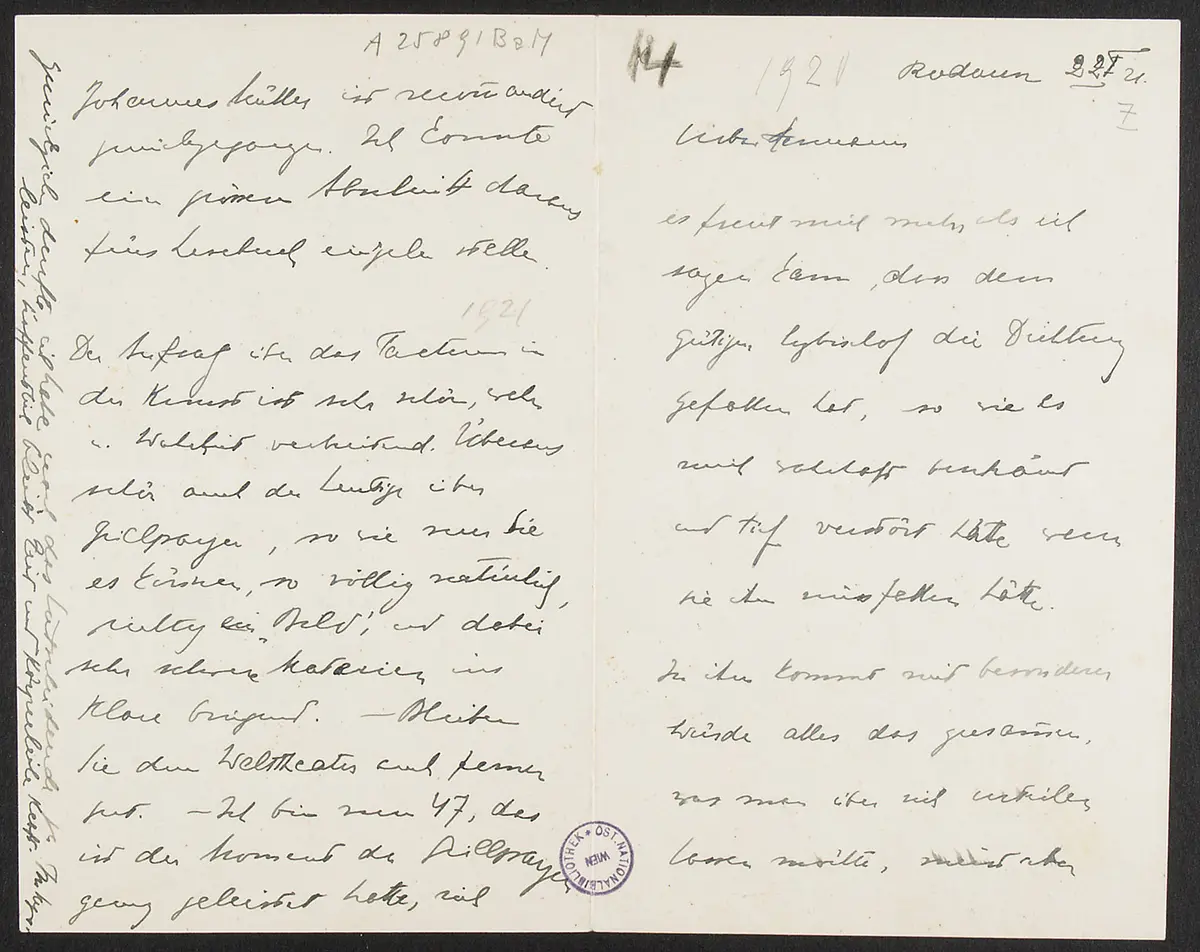 Rodaun 22 I 21.
1921
14
Lieber Hermann
es freut mich mehr als ich
sagen kann, dass dem
gütigen Erzbischof die Dichtung
gefallen hat, so wie es
mich wahrhaft
und tief verstört hätte wenn
sie ihm missfallen hätte.
In ihm kommt mit besonderer
Würde alles das zusammen,
was man über sich urteilen
lassen möchte,
A 25891 BaM
Johannes Müller ist recommandiert
zurückgegangen. Ich konnte
ein grösseren Abschnitt daraus
fürs Lesebuch
1921
Der Aufsatz über das in
der Kunst ist sehr schön, wahr
u. Wahrheit verbreitend. Überaus
schön auch der heutige über
Grillparzer, so wie nur Sie
es können, so völlig natürlich,
richtig ein „Bild", und dabei
sehr schwere Materien ins
Klare bringend. – Bleiben
Sie dem Welttheater auch ferner
gut. – Ich bin nun 47, das
ist der Moment da Grillparzer
genug geleistet hatte, sich
ich habe noch das Entscheidende zu
leisten, hoffentlich bleibt Zeit und körperliche Kraft.
ÖST. NATIONALBIBLIOTHEK
WIEN